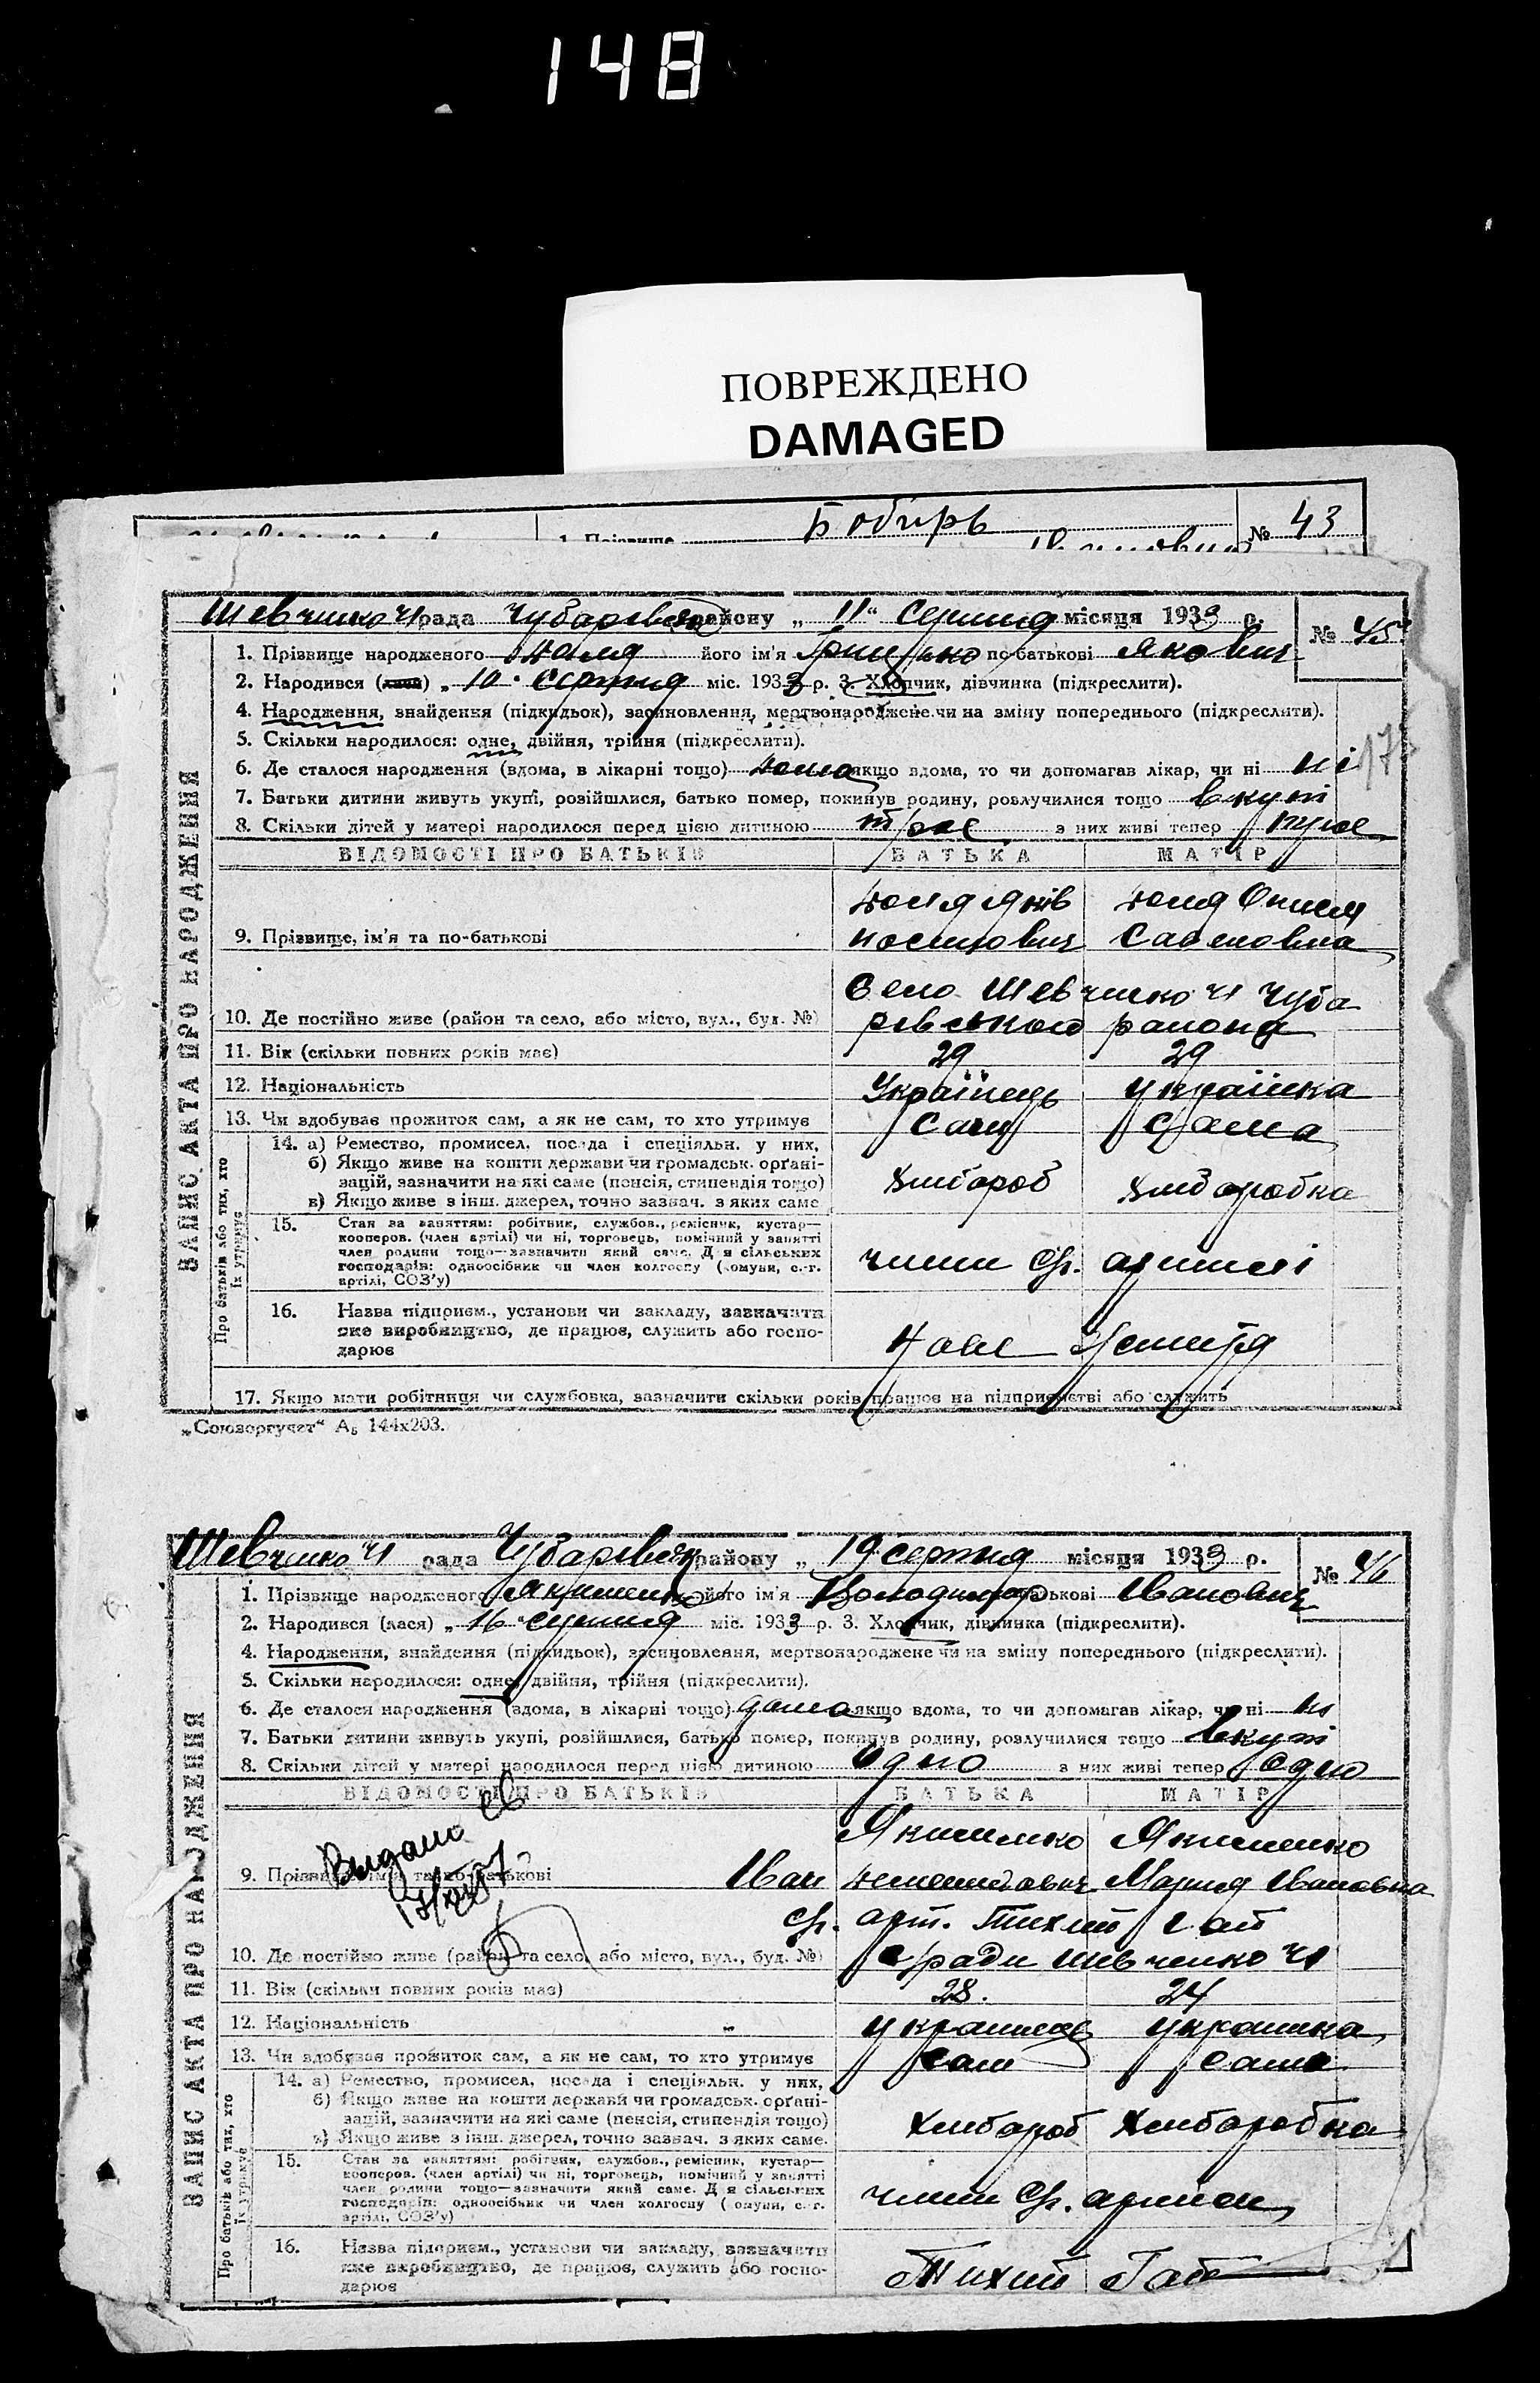 148
ПОВРЕЖДЕНО
DAMAGED
1. Прізвище Бобирь № 43
Шевченко ч1 рада Чубарівськ району „ 11 “ Серпня місяця 1933 р. № 45
1. Прізвище народженого його ім'я Грицько по батькові Якович
2. Народився (лася) „ 10 " серпня міс. 1933 р. 3. Хлопчик, дівчинка (підкреслити).
4. Народження, знайдення (підкидьок), засиновлення, мертвонароджене чи на зміну попереднього (підкреслити).
5. Скільки народилося: одне, двійня, трійня (підкреслити).
6. Де сталося народження (вдома, в лікарні тощо) дома якщо вдома, то чи допомагав лікар, чи ні ні
7. Батьки дитини живуть укупі, розійшлися, батько помер, покинув родину, розлучилися тощо вкупі
8. Скільки дітей у матері народилося перед цією дитиною троє з них живі тепер троє
ВІДОМОСТІ ПРО БАТЬКІВ БАТЬКА МАТІР
Яків
9. Прізвище, ім'я та по-батькові Савеловна
Село Шевченко ч1 Чуба
10. Де постійно живе (район та село, або місто, вул., буд. №) рівського района
11. Вік (скільки повних років має) 29 29
12. Національність Українець Українка
13. Чи здобуває прожиток сам, а як не сам, то хто утримує Сам Сама
14. а) Ремество, промисел, посада і спеціяльн. у них,
б) Якщо живе на кошти держави чи громадськ. орґані-
зацій, зазначити на які саме (пенсія, стипендія тощо) Хлібороб Хліборобка
в) Якщо живе з інш. джерел, точно зазнач. з яких саме
15. Стан за заняттям: робітник, службов., ремісник, кустар—
кооперов. (член артілі) чи ні, торговець, помічний у занятті
член родини тощо—зазначити який саме. Для сільських
господарів: одноосібник чи член колгоспу (комуни, с.-г. члени с/г. артилі
артілі, СОЗ'у)
16. Назва підприєм., установи чи закладу, зазначити
яке виробництво, де працює, служить або госпо-
дарює
17. Якщо мати робітниця чи службовка, зазначити скільки років працює на підприємстві або служить
„Союзоргучет“ А₅ 144х203.
ЗАПИС АКТА ПРО НАРОДЖЕННЯ
Про батьків або тих, хто їх утримує
Шевченко ч1 рада Чубарівськ району „ 19 серпня місяця 1933 р. № 46
1. Прізвище народженого Якименко його ім'я Володимир по батькові Іванович
2. Народився (лася) „ 16 “ серпня міс. 1933 р. 3. Хлопчик, дівчинка (підкреслити).
4. Народження, знайдення (підкидьок), засиновлення, мертвонароджене чи на зміну попереднього (підкреслити).
5. Скільки народилося: одне, двійня, трійня (підкреслити).
6. Де сталося народження (вдома, в лікарні тощо) дома якщо вдома, то чи допомагав лікар, чи ні ні
7. Батьки дитини живуть укупі, розійшлися, батько помер, покинув родину, розлучилися тощо вкупі
8. Скільки дітей у матері народилося перед цією дитиною одно з них живі тепер одно
ВІДОМОСТІ ПРО БАТЬКІВ БАТЬКА МАТІР
Якименко Якименко
Выдано св
9. Прізвище, ім'я та по-батькові Іван Мария Ивановна
с/г. арт. Тихий Гай
10. Де постійно живе (район та село, або місто, вул., буд. №) с/ради Шевченко ч1
11. Вік (скільки повних років має) 28. 24
12. Національність українець українка
13. Чи здобуває прожиток сам, а як не сам, то хто утримує сам сама
14. а) Ремество, промисел, посада і спеціяльн. у них,
б) Якщо живе на кошти держави чи громадськ. орґані-
зацій, зазначити на які саме (пенсія, стипендія тощо) Хлібороб Хліборобка
в) Якщо живе з інш. джерел, точно зазнач. з яких саме.
15. Стан за заняттям: робітник, службов., ремісник, кустар—
кооперов. (член артілі) чи ні, торговець, помічний у занятті
член родини тощо—зазначити який саме. Для сільських
господарів: одноосібник чи член колгоспу (комуни, с.-г. члени с/г. артили
артілі, СОЗ'у)
16. Назва підприєм., установи чи закладу, зазначити
яке виробництво, де працює, служить або госпо- Тихий Гай
дарює
ЗАПИС АКТА ПРО НАРОДЖЕННЯ
Про батьків або тих, хто їх утримує